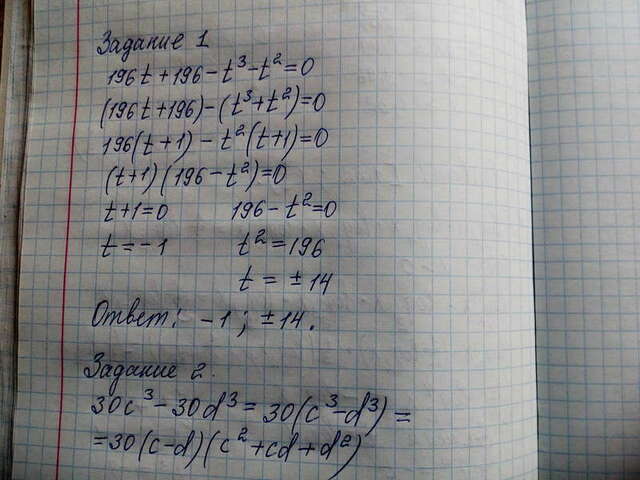 Задание 1
196t+196-t³-t²=0
(196t+196)-(t³+t²)=0
196(t+1)-t²(t+1)=0
(t+1)(196-t²)=0
t+1=0 196-t²=0
t=-1 t²=196
t = ±14
Ответ: -1; ±14.
Задание 2.
30c³-30d³=30(c³-d³)=
=30(c-d)(c²+cd+d²)